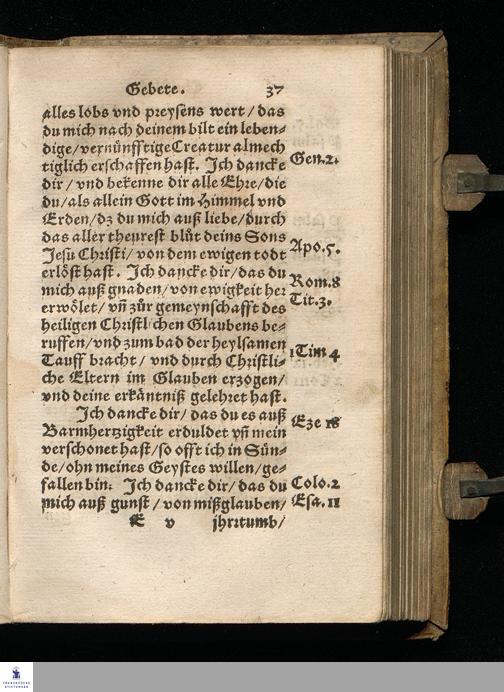 Gebete. 37
alles lobs vnd preysens wert / das
du mich nach deinem bilt ein leben⸗
dige / vernünfftige Creatur almech
tiglich erschaffen hast. Ich dancke
Gen. 2.
dir / vnd bekenne dir alle Ehre / die
du / als allein Gott im Himmel vnd
Erden / dz du mich auß liebe / durch
das aller theurest blůt deins Sons
Jesu Christi / von dem ewigen todt
Apo. 5.
erlöst hast. Ich dancke dir / das du
mich auß gnaden / von ewigkeit her
Rom. 8
erwölet / vñ zůr gemeynschafft des
Tit. 3.
heiligen Christlichen Glaubens be⸗
ruffen / vnd zum bad der heylsamen
Tauff bracht / vnd durch Christli⸗
1 Tim 4
che Eltern im Glauben erzogen /
vnd deine erkäntniß gelehret hast.
Ich dancke dir / das du es auß
Barmhertzigkeit erduldet vñ mein
Eze 18
verschonet hast / so offt ich in Sün⸗
de / ohn meines Geystes willen / ge⸗
fallen bin. Ich dancke dir / das du
Colo. 2
mich auß gunst / von mißglauben /
Esa. 11
E v jhrrtumb /